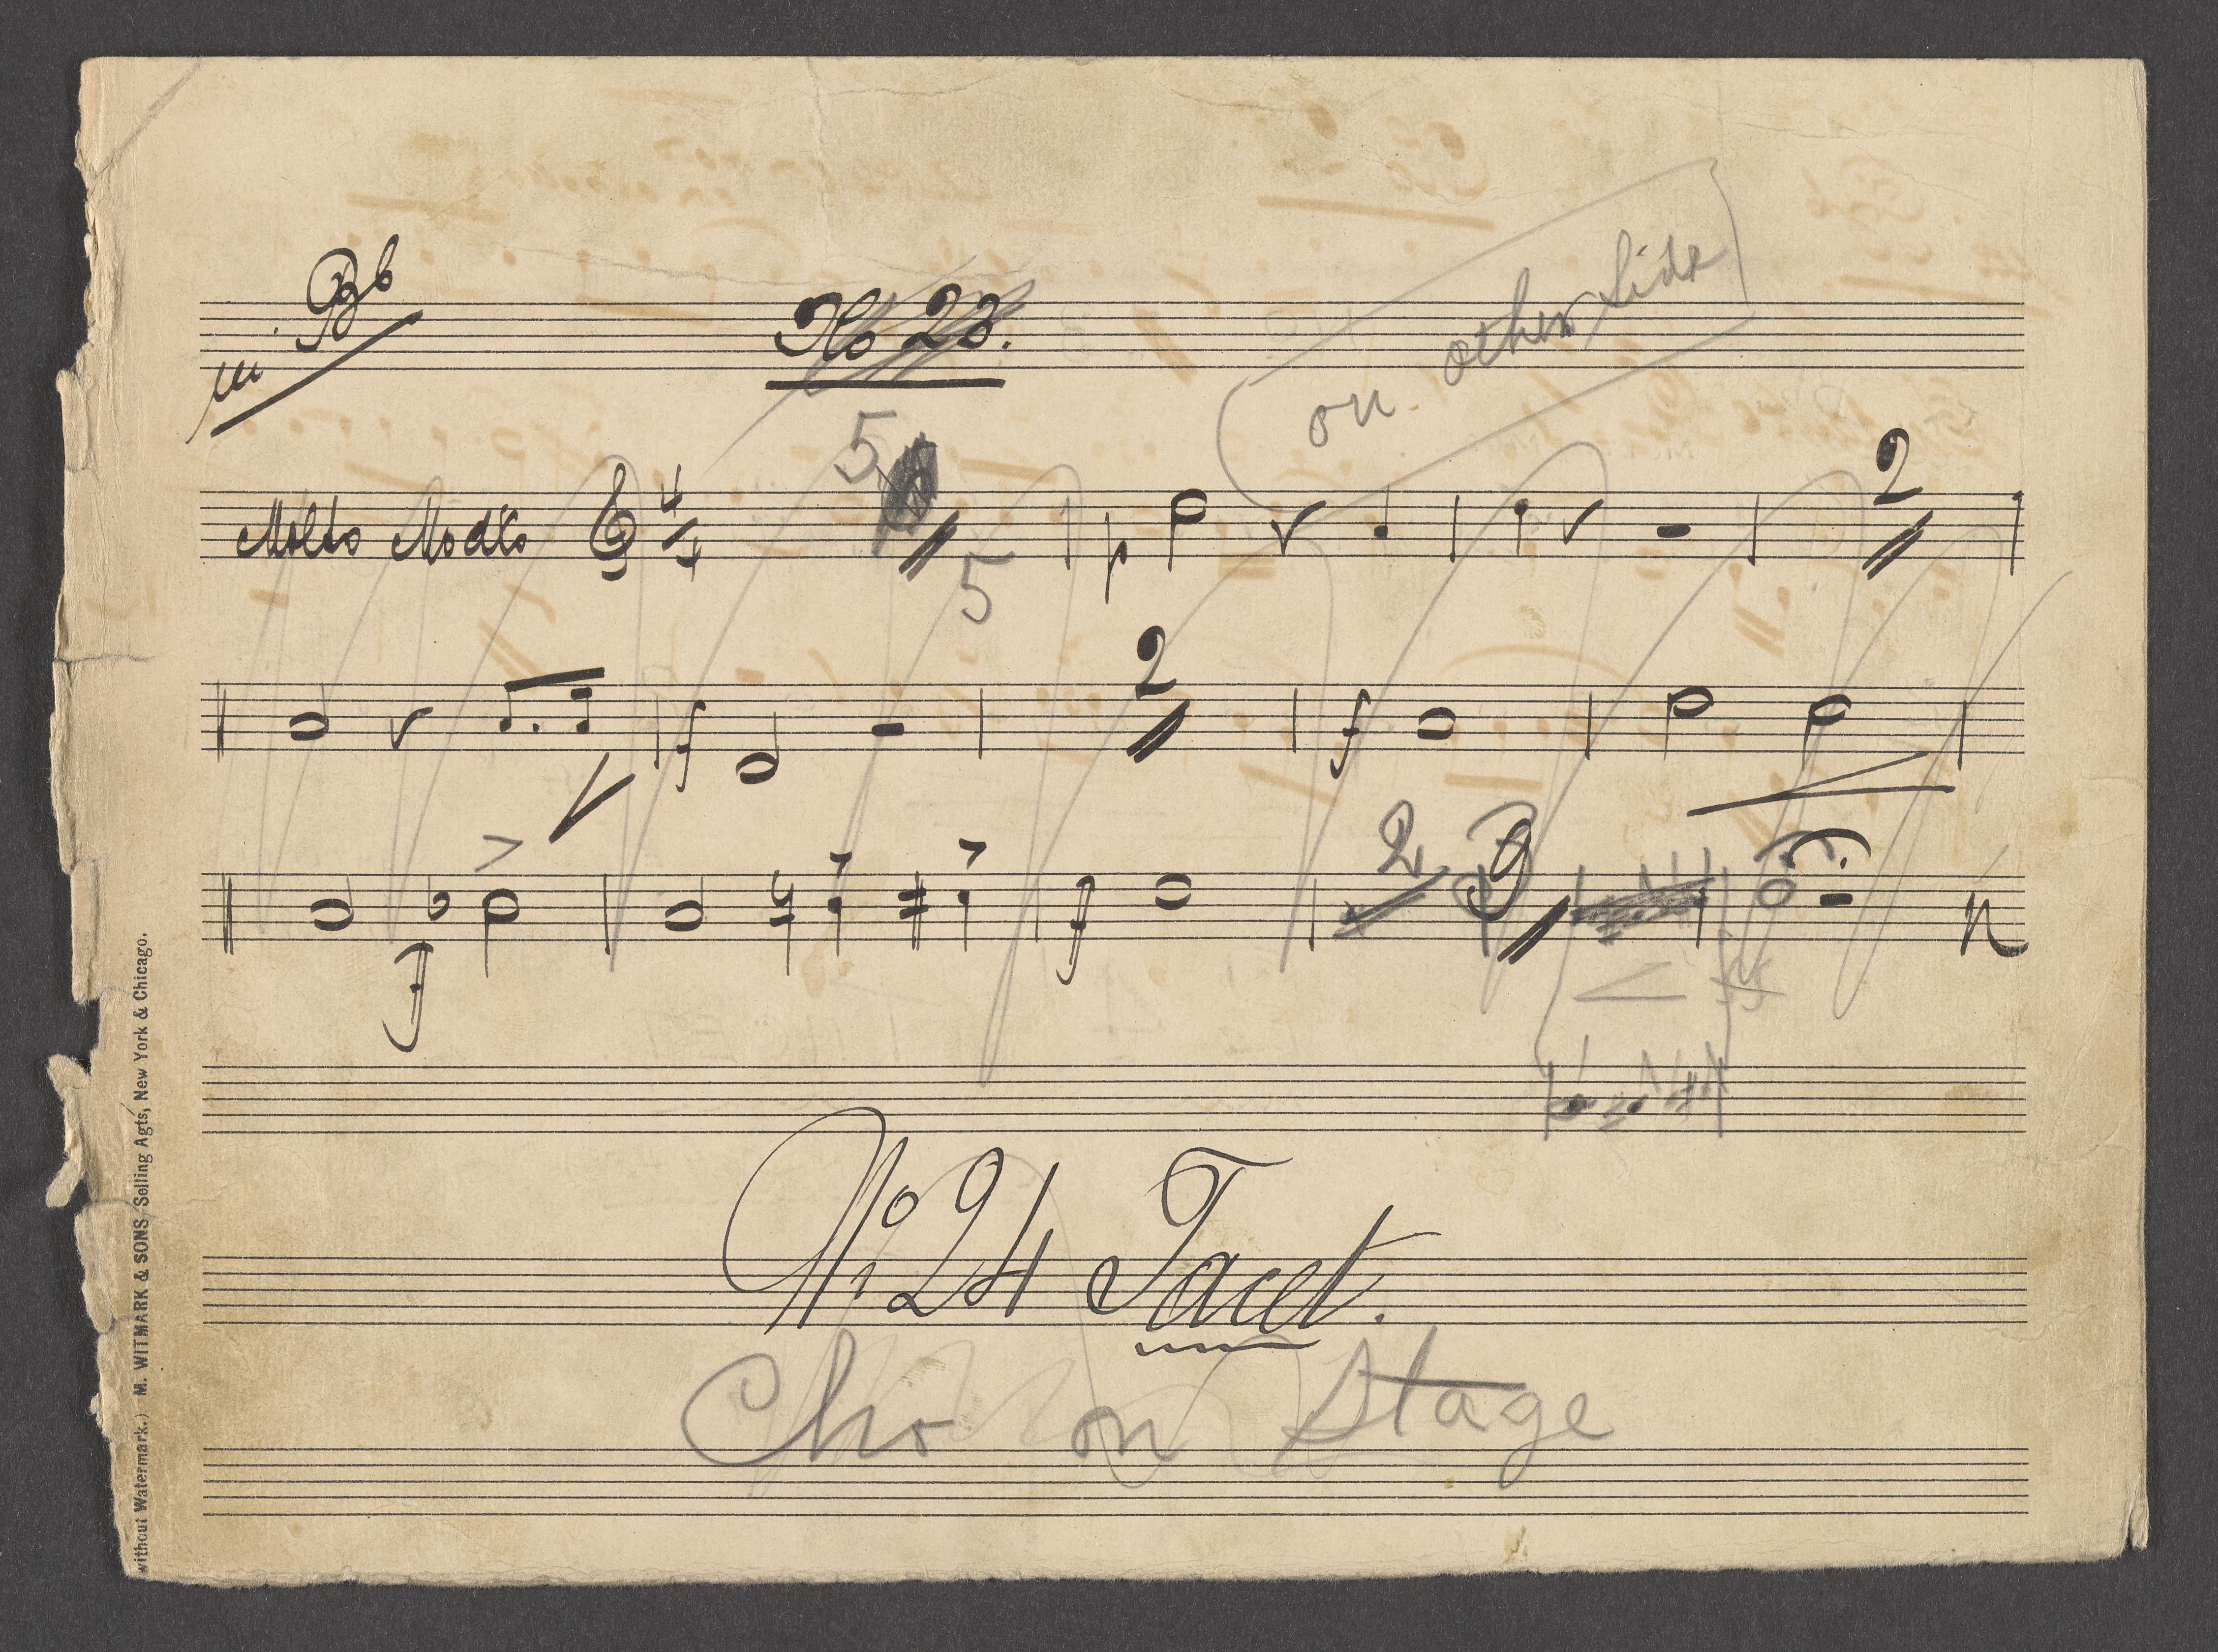 in Bb
No 23.
on other side
5
Molto Modto 4 4 p 2
5
f 2 f
f f 2
No 24 Tacet.
Cho on Stage
without Watermark.) M. WITMARK & SONS Selling Agts, New York & Chicago.